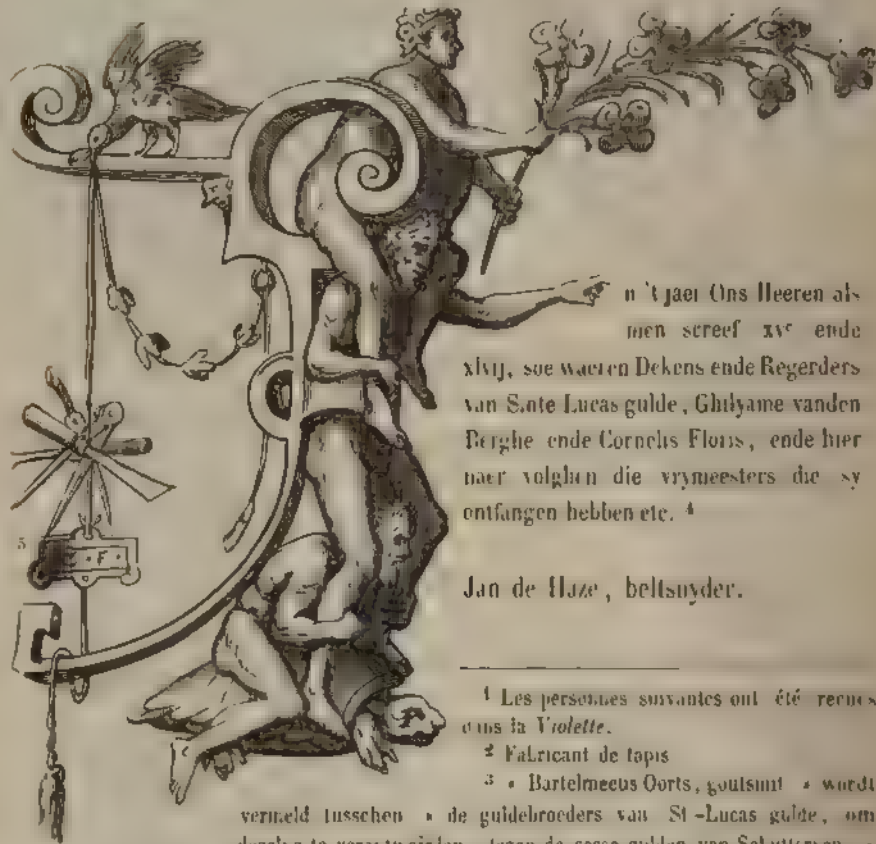 n 't jaer Ons Heeren als
men screef xvᶜ ende
xlvij, soe waeren Dekens ende Regerders
van Sinte Lucas gulde, Ghilyame vanden
Berghe ende Cornelis Floris, ende hier
naer volghen die vrymeesters die sy
ontfangen hebben etc. ⁴
5
F
Jan de Haze, beltsnyder.
¹ Les personnes suivantes ont été reçues
dans la Violette.
² Fabricant de tapis
³ « Bartelmeeus Oorts, goutsmit » wordt
vermeld tusschen « de guldebroeders van St-Lucas gulde, om